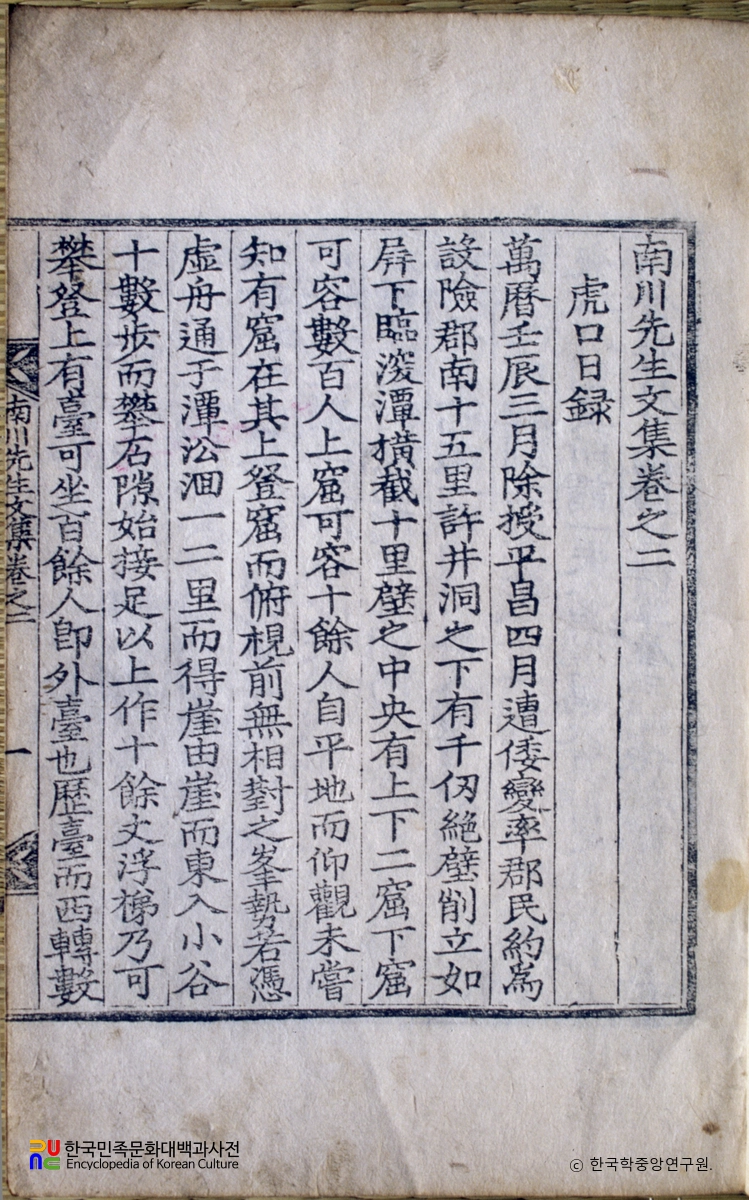 南川先生文集卷之二
虎口日錄
萬曆壬辰三月除授平昌四月遭倭變率郡民約爲
設險郡南十五里許井洞之下有千仞絶壁削立如
屛下臨深潭橫截十里壁之中央有上下二窟下窟
可容數百人上窟可容十餘人自平地而仰觀未嘗
知有窟在其上登窟而俯視前無相對之峯勢若憑
虛舟通于渾沿洄一二里而得崖由崖而東入小谷
十數步而攀石隙始接足以上作十餘丈浮梯乃可
攀登上有臺可坐百餘人卽外臺也歷臺而西轉數
南川先生文集卷之二
一
한국민족문화대백과사전
Encyclopedia of Korean Culture
ⓒ 한국학중앙연구원.